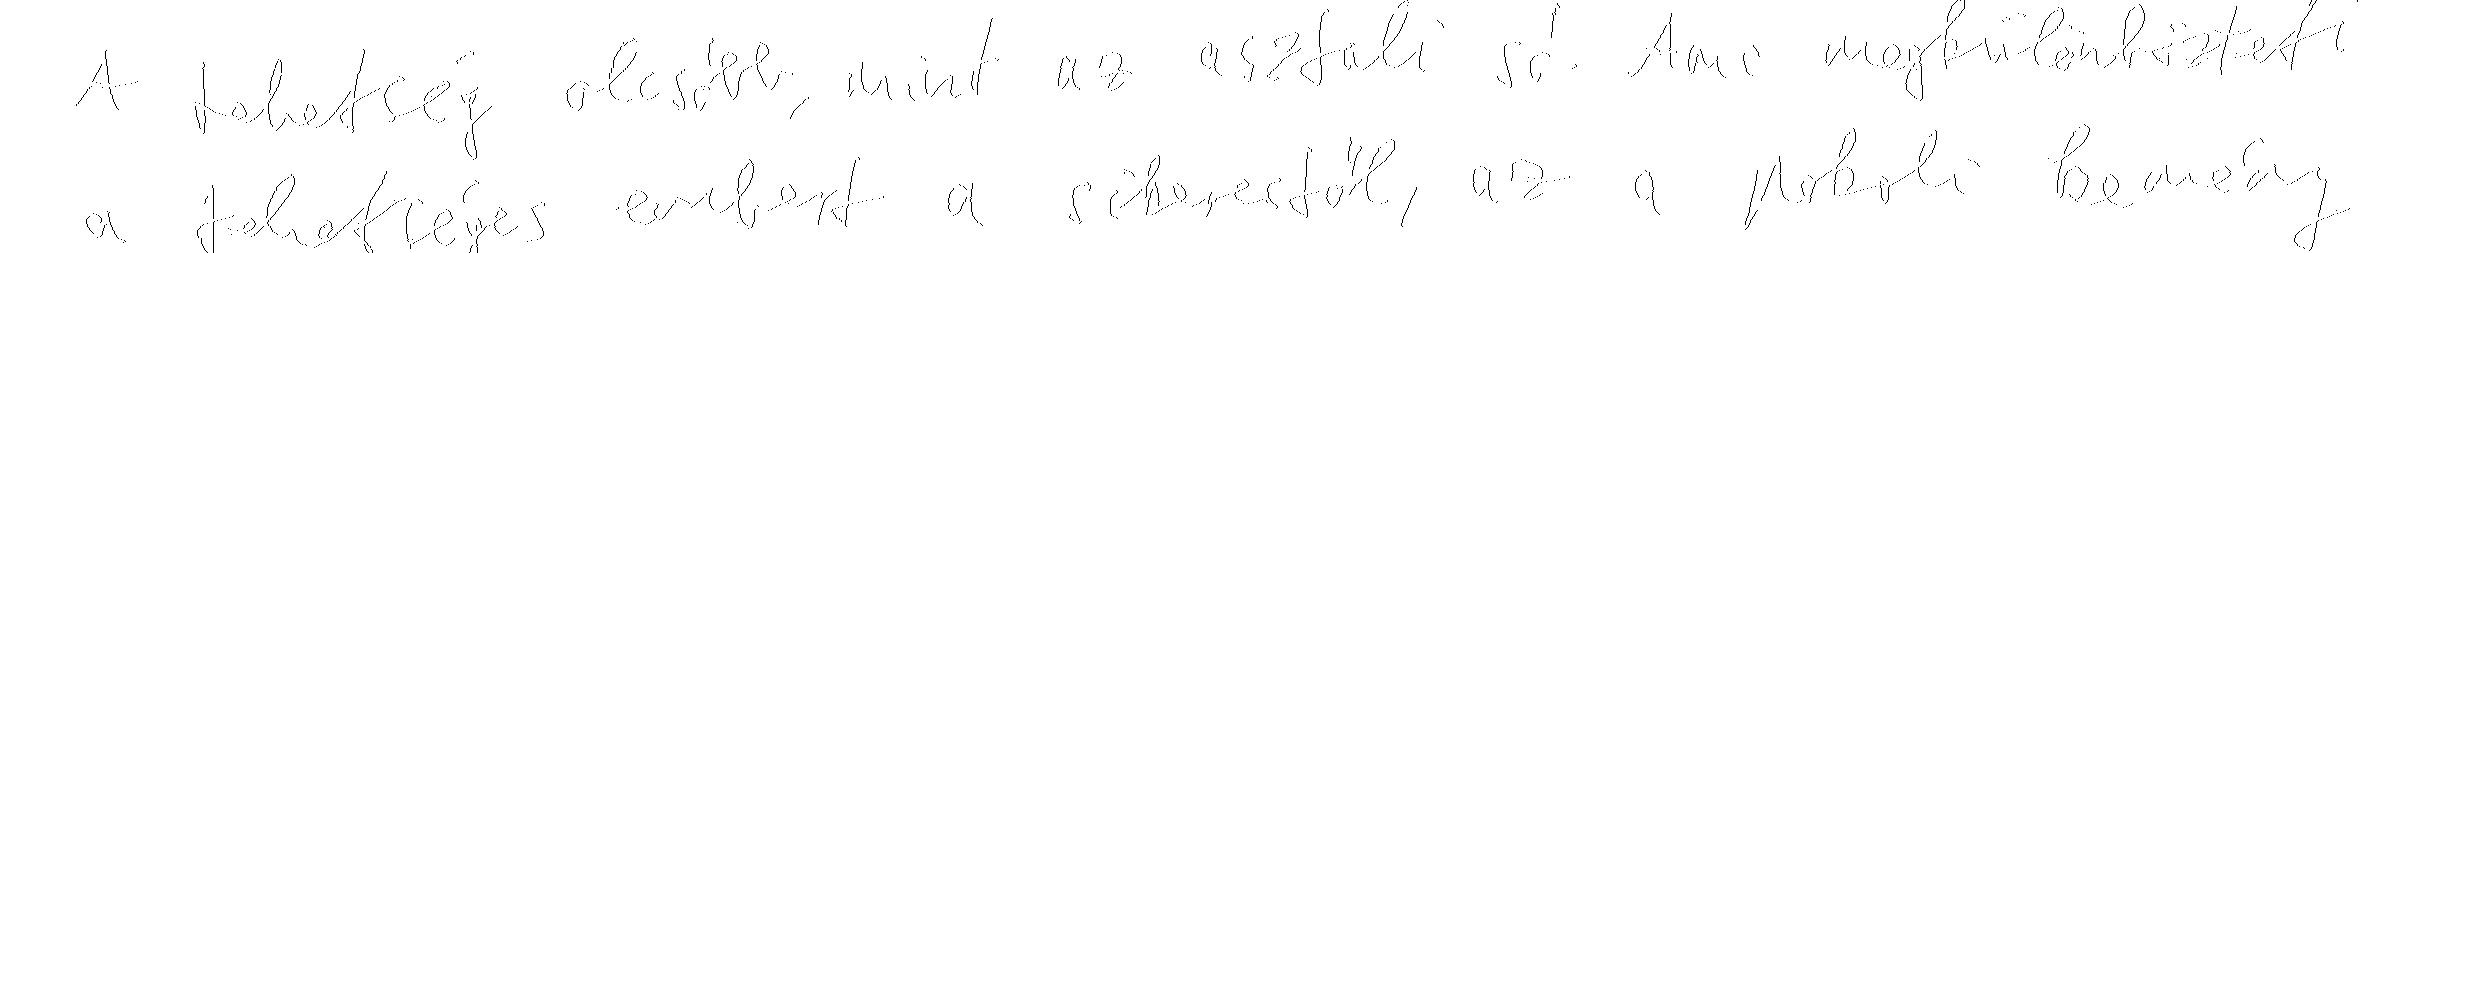 A tehetség olcsóbb, mint az asztali só. Ami megkülönbözteti
a tehetséges embert a sikerestől, az a pokoli kemény